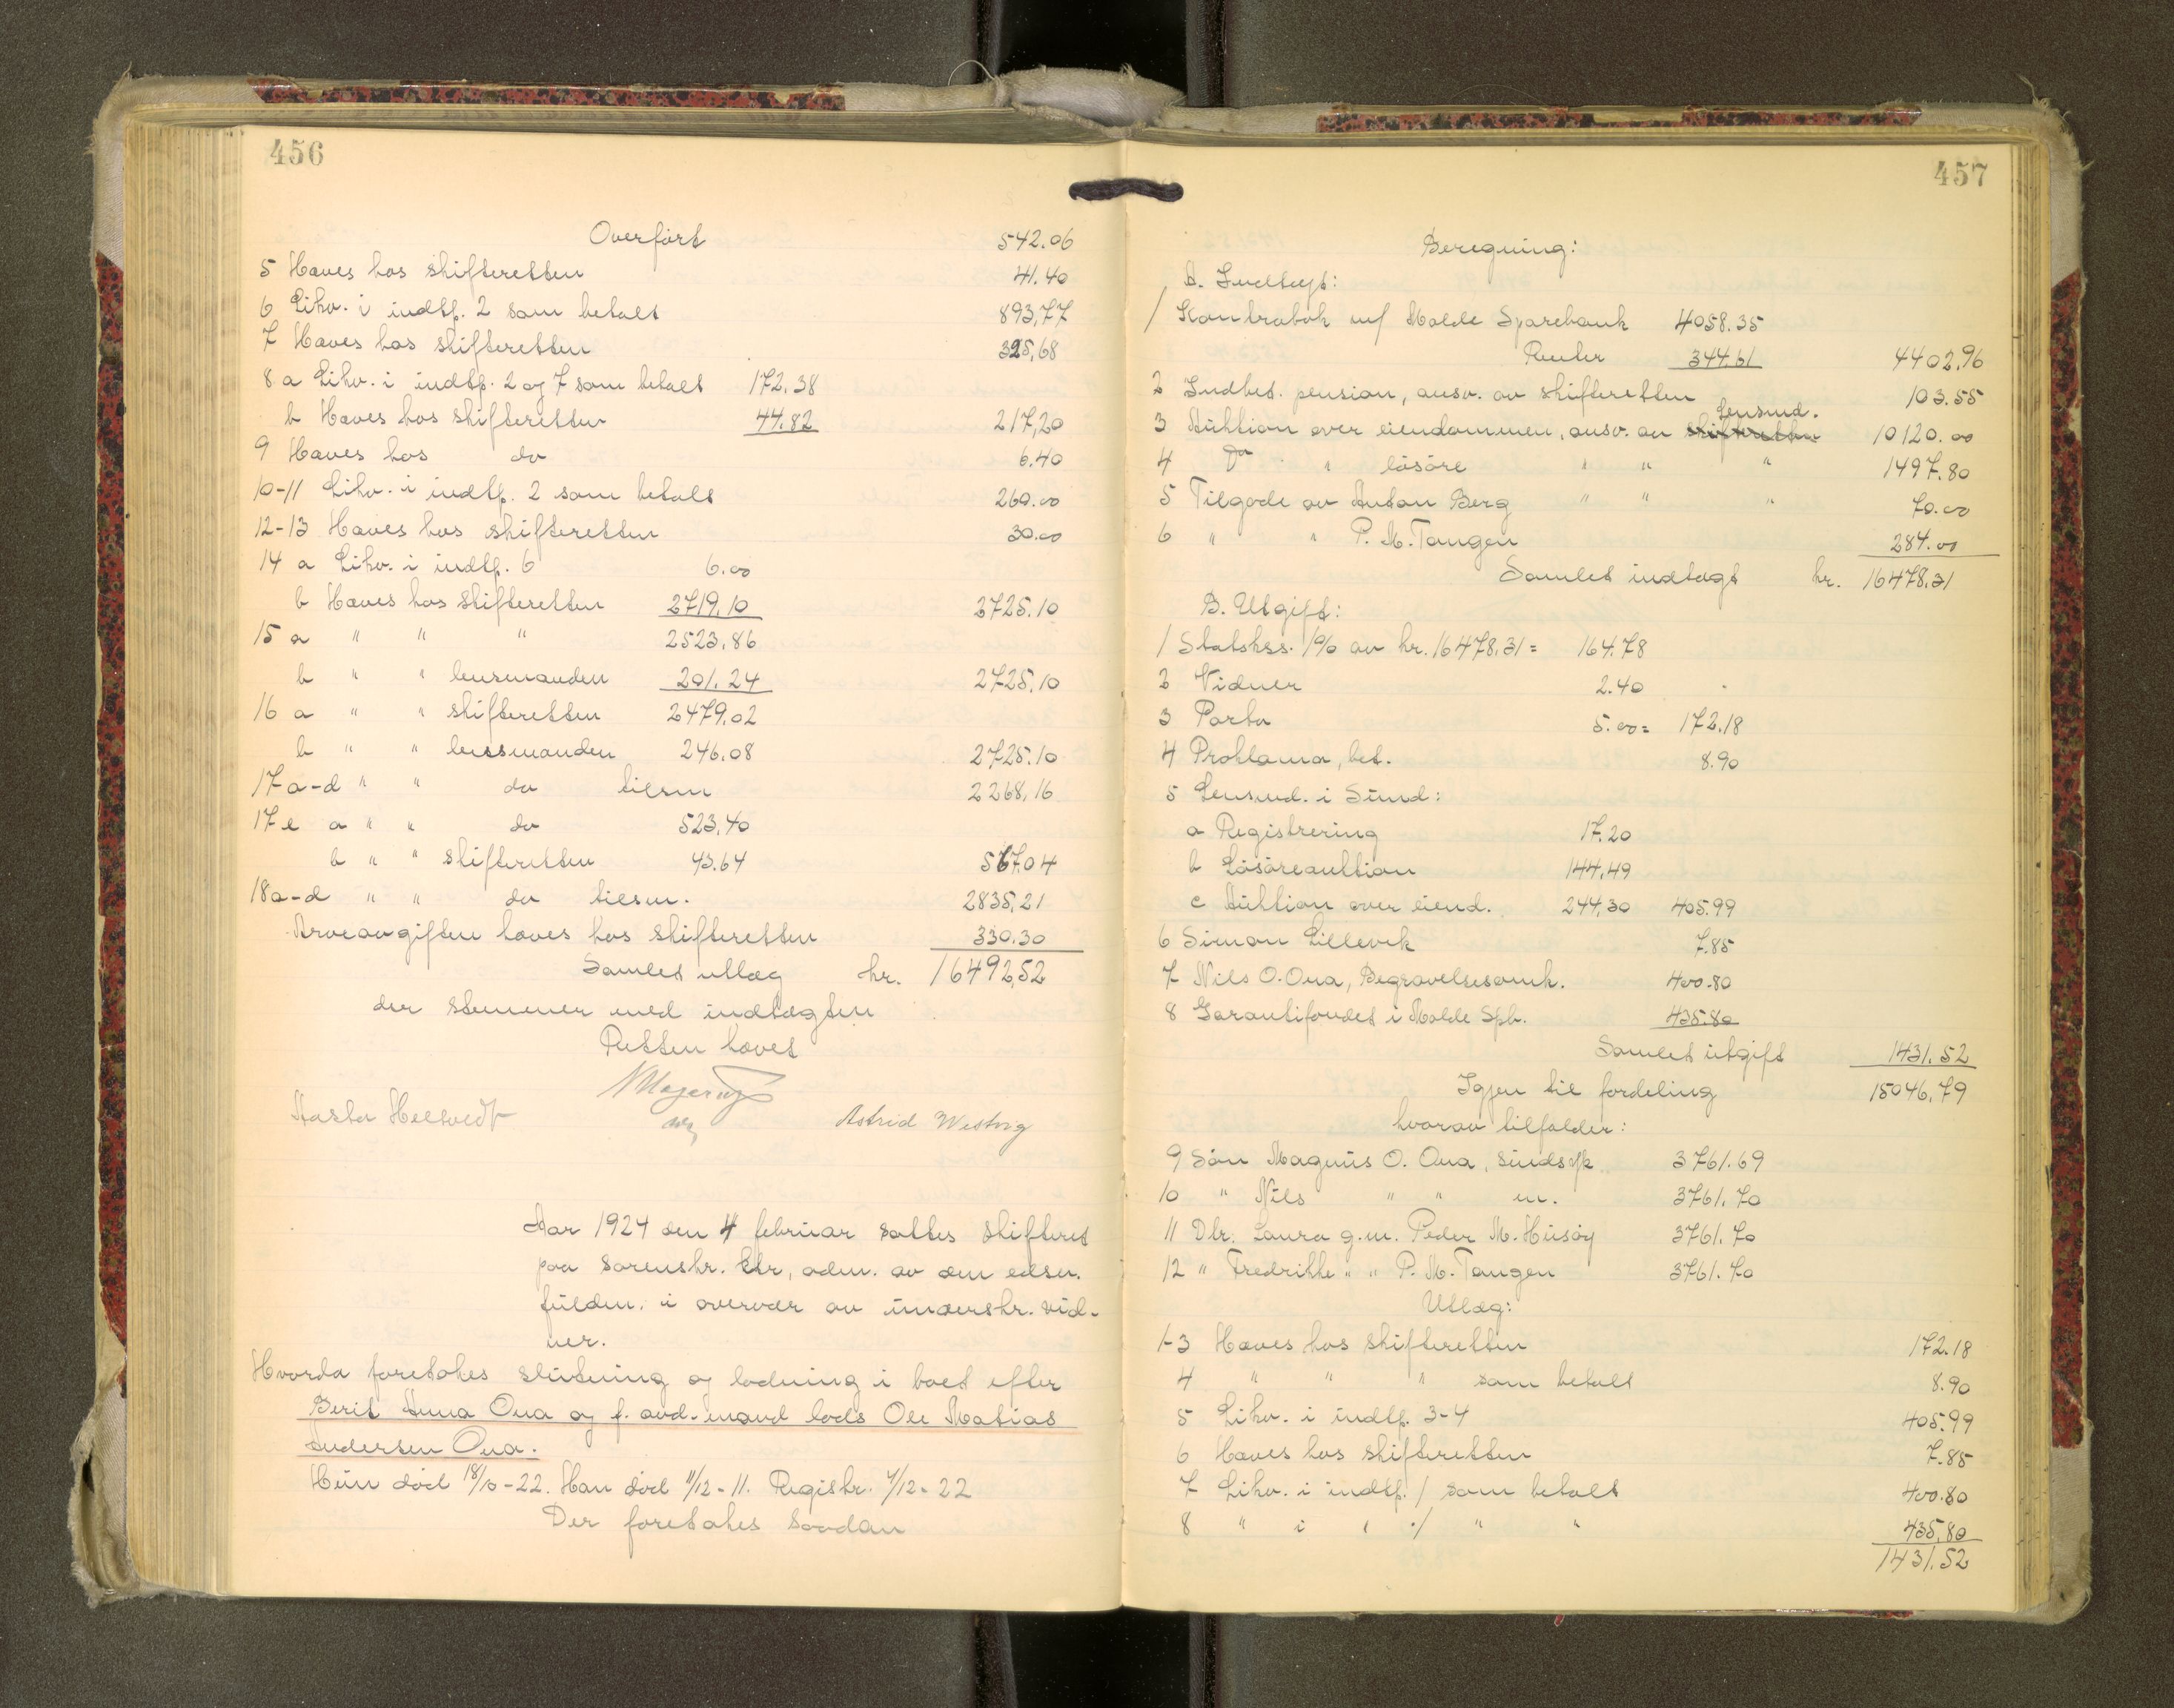 456
Overført 542.06
5 Haves hos skifteretten 41.40
6 Likv. i indtp. 2 som betalt 893,77
7 Haves hos skifteretten 325,68
8 a Likv. i indtp. 2 og 7 som betalt 172.38
b Haves hos skifteretten 44.82 217,20
9 Haves hos do 6.40
10-11 Likv. i indtp. 2 som betalt 260.00
12-13 Haves hos skifteretten 30.00
14 a Likv. i indtp. 6 6.00
b Haves hos skifteretten 2719.10 2725.10
15 a " " " 2523.86
b " " lensmanden 201.24 2725.10
16 a " " skifteretten 2479.02
b " " lensmanden 246.08 2725.10
17 a-d " " do tilsm 2268,16
17 e a " " do 523.40
b " " skifteretten 43.64 567.04
18 a-d " " do tilsm. 2835,21
Arveavgiften haves hos skifteretten 330.30
Samlet utlæg kr. 16492,52
der stemmer med indtægten
Retten hævet
Aasta Heltvedt Astrid Westvig
Aar 1924 den 4 februar sattes skifteret
paa sorenskr. ktr, adm. av den edsv.
fuldm. i overvær av underskr. vid-
ner.
Hvorda foretokes slutning og lodning i boet efter
Berit Anna Ona og f. avd. mand lods Ole Matias
Andersen Ona.
Hun död 18/10-22. Han död 11/12-11. Registr. 4/12-22
Der foretokes saadan
457
Beregning:
A. Indtægt:
1 Kontrabok m/ Molde Sparebank 4058.35
Renter 344.61 4402.96
2 Indbet. pension, ansv. av skifteretten 103.55
lensmd.
3 Auktion over eiendommen, ansv. av skifteretten 10120.00
4 Do " lösöre " " " 1497.80
5 Tilgode av Anton Berg " " " 70.00
6 " " P. M. Tangen 284.00
Samlet indtægt kr. 16478.31
B. Utgift:
1 Statskss. 1% av kr. 16478,31 = 164.78
2 Vidner 2.40
3 Porto 5.00 = 172.18
4 Proklama, bet. 8.90
5 Lensmd. i Sund:
a Registrering 17.20
b Lösöreauktion 144,49
c Auktion over eiend. 244,30 405.99
6 Simon Lillevik 7.85
7 Nils O. Ona, Begravelsesomk. 400.80
8 Garantifondet i Molde Spb. 435.80
Samlet utgift 1431.52
Igjen til fordeling 15046.79
hvorav tilfalder:
9 Sön Magnus O. Ona, sindssyk 3761.69
10 " Nils " " m. 3761.70
11 Dtr. Laura g.m. Peder M. Husöy 3761.70
12 " Fredrikke " " P. M. Tangen 3761.70
Utlæg:
1-3 Haves hos skifteretten 172.18
4 " " " som betalt 8.90
5 Likv. i indtp. 3-4 405.99
6 Haves hos skifteretten 7.85
7 Likv. i indtp. 1 som betalt 400.80
8 " i " 1 " " 435,80
1431.52